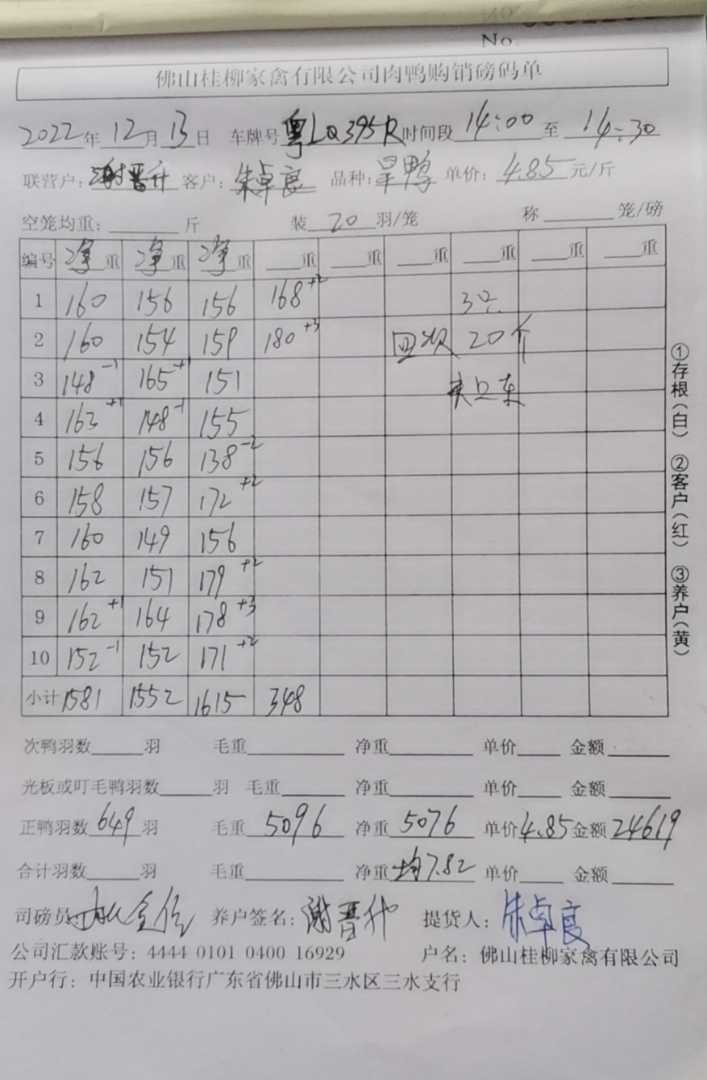 No.
佛山桂柳家禽有限公司肉鸭购销磅码单
2022年12月13日 车牌号粤LQ395R时间段14:00至14:30
联营户:谢晋升 客户:朱卓良 品种:旱鸭 单价:4.85元/斤
空笼均重:____斤 装20羽/笼 称____笼/磅
编号 净重 净重 净重 __重 __重 __重 __重 __重 __重
1 160 156 156 168+2 3只
2 160 154 159 180+3 回收 20个
3 148-1 165+1 151
4 163+1 148-1 155
5 156 156 138-2
6 158 157 172+2
7 160 149 156
8 162 151 179+2
9 162+1 164 178+3
10 152-1 152 171+2
小计 1581 1552 1615 348
次鸭羽数____羽 毛重____ 净重____ 单价____ 金额____
光板或叮毛鸭羽数____羽 毛重____ 净重____ 单价____ 金额____
正鸭羽数649羽 毛重5096 净重5076 单价4.85金额24619
合计羽数____羽 毛重____ 净重均7.82 单价____ 金额____
司磅员 养户签名:谢晋升 提货人:朱卓良
公司汇款账号:4444 0101 0400 16929 户名:佛山桂柳家禽有限公司
开户行:中国农业银行广东省佛山市三水区三水支行
①存根(白) ②客户(红) ③养户(黄)